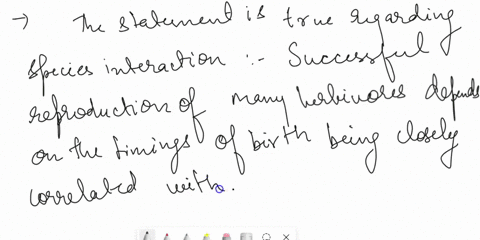 → The statement is true regarding
species interaction :- Successful
reproduction of many herbivores depends
on the timings of birth being closely
correlated with.